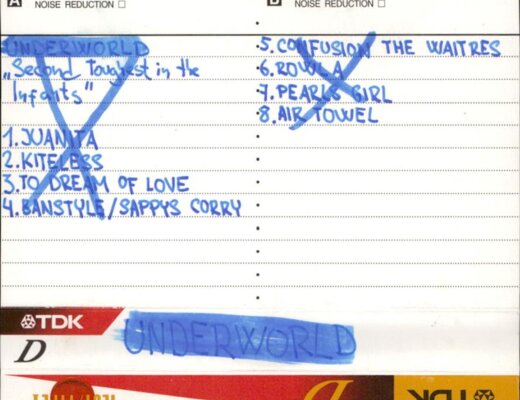 A
NOISE REDUCTION
UNDERWORLD
„Second Toughest in the
Infants"
1. JUANITA
2. KITELESS
3. TO DREAM OF LOVE
4. BANSTYLE/SAPPYS CORRY
B
NOISE REDUCTION
5. CONFUSION THE WAITRES
6. ROWLA
7. PEARLS GIRL
8. AIR TOWEL
TDK
D
UNDERWORLD
D
TDK